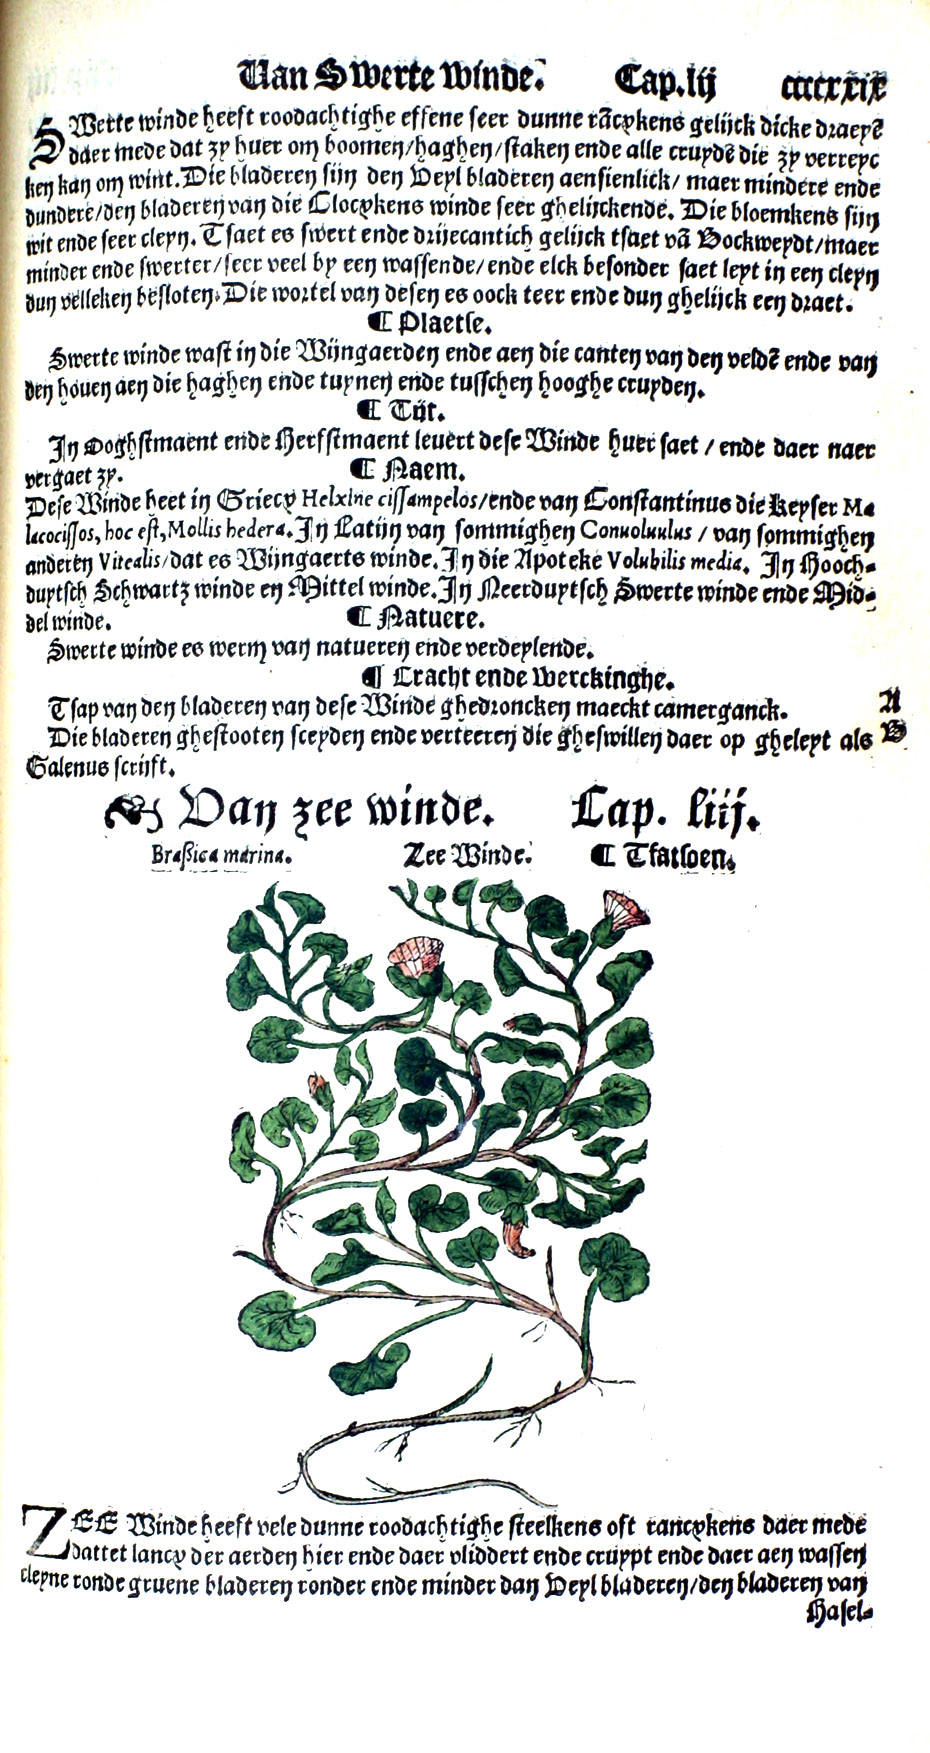 Van Swerte winde. Cap. lij ccccxxix
SWerte winde heeft roodachtighe effene seer dunne rãcxkens gelijck dicke draeyẽ
daer mede dat zy huer om boomen/haghen/staken ende alle cruydẽ die zy verreyc
ken kan om wint. Die bladeren sijn den Veyl bladeren aensienlick/ maer mindere ende
dundere/den bladeren van die Clocxkens winde seer ghelijckende. Die bloemkens sijn
wit ende seer cleyn. Tsaet es swert ende drijecantich gelijck tsaet vã Bockweydt/maer
minder ende swerter/seer veel by een wassende/ende elck besonder saet leyt in een cleyn
dun velleken besloten. Die wortel van desen es oock teer ende dun ghelijck een draet.
¶ Plaetse.
Swerte winde wast in die Wijngaerden ende aen die canten van den veldẽ ende van
den houen aen die haghen ende tuynen ende tusschen hooghe cruyden.
¶ Tijt.
In Ooghstmaent ende Herfstmaent leuert dese Winde huer saet / ende daer naer
vergaet zy. ¶ Naem.
Dese Winde heet in Griecx Helxine cissampelos/ende van Constantinus die Keyser Ma
lacocissos, hoc est, Mollis hedera. In Latijn van sommighen Conuoluulus / van sommighen
anderen Vitealis/dat es Wijngaerts winde. In die Apoteke Volubilis media. In Hooch-
duytsch Schwartz winde en Mittel winde. In Neerduytsch Swerte winde ende Mid-
del winde. ¶ Natuere.
Swerte winde es werm van natueren ende verdeylende.
¶ Cracht ende Werckinghe.
Tsap van den bladeren van dese Winde ghedroncken maeckt camerganck. A
Die bladeren ghestooten sceyden ende verteeren die gheswillen daer op gheleyt als B
Galenus scrijft.
Van zee winde. Cap. liij.
Braßica marina. Zee Winde. ¶ Tfatsoen.
ZEE Winde heeft vele dunne roodachtighe steelkens oft rancxkens daer mede
dattet lancx der aerden hier ende daer vliddert ende cruypt ende daer aen wassen
cleyne ronde gruene bladeren ronder ende minder dan Veyl bladeren/den bladeren van
Hasel-